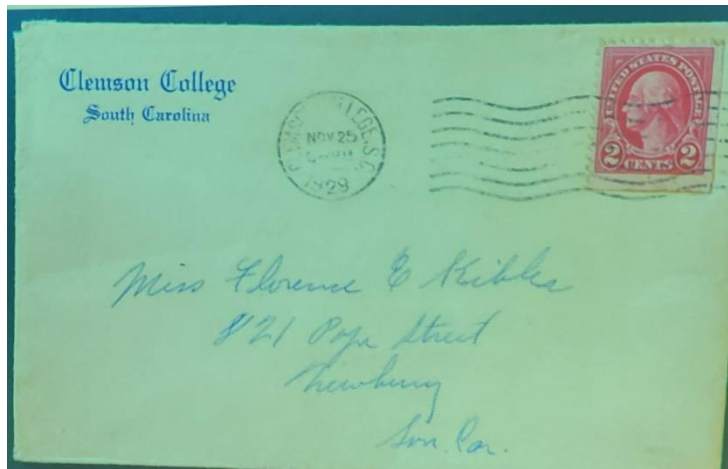 Clemson College
South Carolina
CLEMSON COLLEGE, S.C.
NOV 25
1929
UNITED STATES POSTAGE
2 CENTS 2
Miss Florence E Kibler
821 Pope Street
Newberry
Sou. Car.